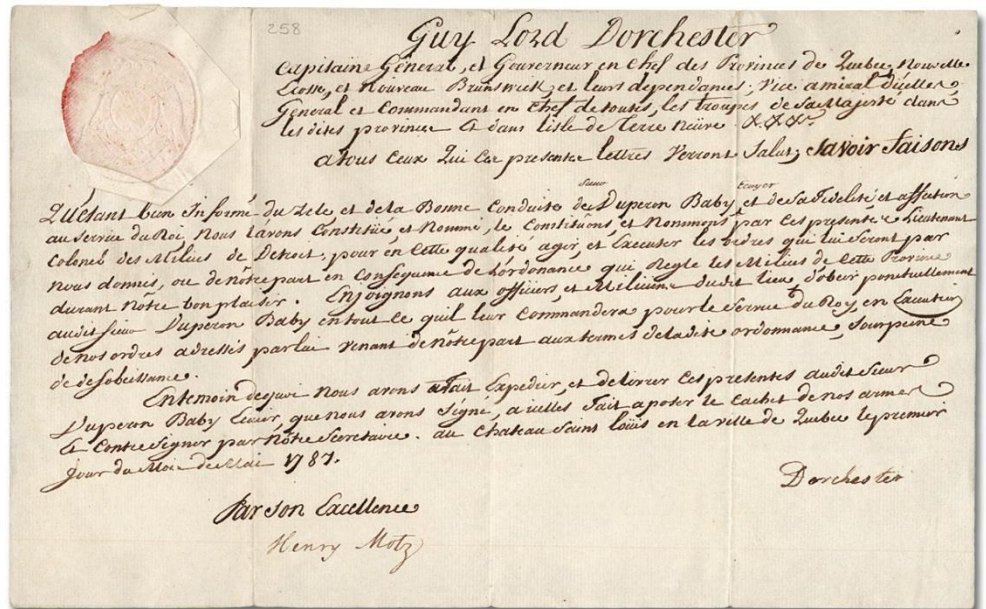 258
Guy Lord Dorchester
Capitaine Général, et Gouverneur en Chef des Provinces de Quebec, Nouvelle
Ecosse, et Nouveau Brunswick, et leurs dependances; Vice amiral D'icelles,
Général et Commandant en Chef de toutes, les troupes de Sa Majesté dans
les dites province Et dans l'isle de terre neüve. &.&.&.
a tous ceux Qui ces presentes lettres Verront Salut, Savoir Faisons
Sieur Ecuyer
Qu'Etant bien Informé du Zele et de la Bonne Conduite de Duperon Baby et de sa Fidelité et affection
au Service du Roi, Nous l'avons Constitué, et Nommé, le Constitüons, et Nommons par Ces presentes Lieutenant
Colonel des Milices de Detroit, pour en Cette qualité agir, et Executer les ordres qui lui Seront par
nous donnés, ou de nôtre part en Conséquence de l'ordonance qui Regle les Milices de Cette Province
durant nôtre bon plaisir. Enjoignons aux officiers, et Miliciens du dit lieu, d'obeir ponctuellement
audit Sieur Duperon Baby en tout ce qu'il leur Commandera pour le Service du Roy, en Execution
de nos ordres adressés par lui venant de nôtre part aux termes de la dite ordonnance, Sour peine
de desobeissance.
En temoin de quoi nous avons fait Expedier, et delivrer Ces presentes audit Sieur
Duperon Baby Ecuier, que nous avons Signé, a icelles fait aposer le cachet de nos armes
Et Contre Signer par Nôtre Secretaire. au Chateau Saint loüis en la ville de Quebec le premier
Jour du Moi de Mai 1787.
Dorchester
Par son Excellence
Henry Motz